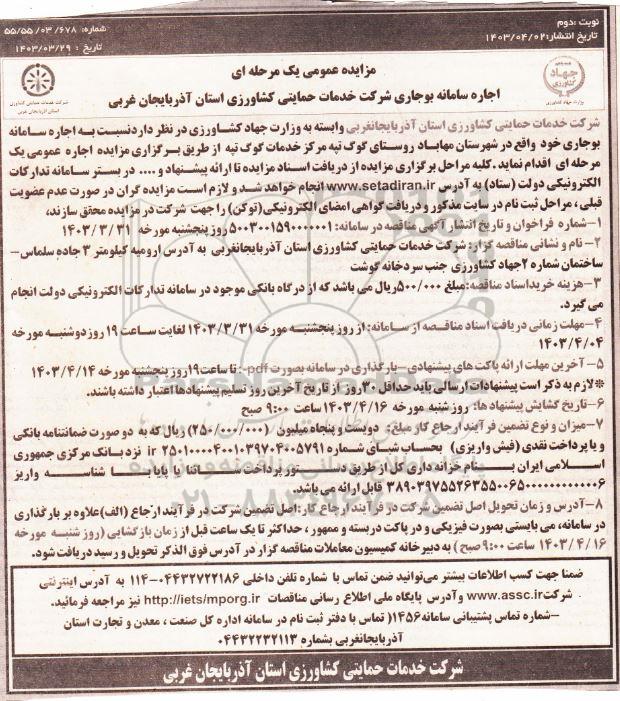 نوبت :دوم
تاریخ انتشار:۱۴۰۳/۰۴/۰۲
شماره: ۵۵/۵۵/۰۳/۶۷۸
تاریخ : ۱۴۰۳/۰۳/۲۹
جهاد
کشاورزی
وزارت جهاد کشاورزی
شرکت خدمات حمایتی کشاورزی
استان آذربایجان غربی
مزایده عمومی یک مرحله ای
اجاره سامانه بوجاری شرکت خدمات حمایتی کشاورزی استان آذربایجان غربی
شرکت خدمات حمایتی کشاورزی استان آذربایجانغربی وابسته به وزارت جهاد کشاورزی در نظر دارد نسبت به اجاره سامانه
بوجاری خود واقع در شهرستان مهاباد روستای گوک تپه مرکز خدمات گوگ تپه از طریق برگزاری مزایده اجاره عمومی یک
مرحله ای اقدام نماید .کلیه مراحل برگزاری مزایده از دریافت اسناد مزایده تا ارائه پیشنهاد و .... در بستر سامانه تدارکات
الکترونیکی دولت (ستاد) به آدرس www.setadiran.ir انجام خواهد شد و لازم است مزایده گران در صورت عدم عضویت
قبلی ، مراحل ثبت نام در سایت مذکور و دریافت گواهی امضای الکترونیکی(توکن) را جهت شرکت در مزایده محقق سازند،
۱-شماره فراخوان و تاریخ انتشار آگهی مناقصه در سامانه: ۵۰۰۳۰۰۱۵۹۰۰۰۰۰۱ روز پنجشنبه مورخه ۱۴۰۳/۳/۳۱
۲- نام و نشانی مناقصه گزار: شرکت خدمات حمایتی کشاورزی استان آذربایجانغربی به آدرس ارومیه کیلومتر ۳ جاده سلماس-
ساختمان شماره ۲جهاد کشاورزی جنب سردخانه گوشت
۳-هزینه خرید اسناد مناقصه:مبلغ ۵۰۰/۰۰۰ریال می باشد که از درگاه بانکی موجود در سامانه تدارکات الکترونیکی دولت انجام
می گیرد.
۴-مهلت زمانی دریافت اسناد مناقصه از سامانه: از روز پنجشنبه مورخه ۱۴۰۳/۳/۳۱ لغایت ساعت ۱۹ روز دوشنبه مورخه
۱۴۰۳/۴/۰۴
۵-آخرین مهلت ارائه پاکت های پیشنهادی-بارگذاری در سامانه بصورت pdf-: تا ساعت۱۹روز پنجشنبه مورخه ۱۴۰۳/۴/۱۴
*لازم به ذکر است پیشنهادات ارسالی باید حداقل ۳۰روز از تاریخ آخرین روز تسلیم پیشنهادها اعتبار داشته باشند.
۶-تاریخ گشایش پیشنهاد ها: روز شنبه مورخه ۱۴۰۳/۴/۱۶ ساعت ۹:۰۰ صبح
۷-میزان و نوع تضمین فرآیند ارجاع کار مبلغ: دویست و پنجاه میلیون (۲۵۰/۰۰۰/۰۰۰) ریال که به دو صورت ضمانتنامه بانکی
و یا پرداخت نقدی (فیش واریزی) بحساب شبای شماره ir ۲۵۰۱۰۰۰۰۴۰۰۱۰۳۹۷۰۴۰۰۵۷۹۱ نزد بانک مرکزی جمهوری
اسلامی ایران بنام خزانه داری کل از طریق دستور پرداخت ساتنا یا پایا با شناسه واریز
۳۸۹۰۳۹۷۵۵۲۶۳۵۵۰۰۶۵۰۰۰۰۰۰۰۰۰۰۰۰۶ قابل ارائه می باشد.
۸-آدرس و زمان تحویل اصل تضمین شرکت در فرآیند ارجاع کار: اصل تضمین شرکت در فرآیند ارجاع (الف)علاوه بر بارگذاری
در سامانه، می بایستی بصورت فیزیکی و در پاکت دربسته و ممهور ، حداکثر تا یک ساعت قبل از زمان بازگشایی (روز شنبه مورخه
۱۴۰۳/۴/۱۶ ساعت ۹:۰۰ صبح ) به دبیرخانه کمیسیون معاملات مناقصه گزار در آدرس فوق الذکر تحویل و رسید دریافت شود.
ضمنا جهت کسب اطلاعات بیشتر می‌توانید ضمن تماس با شماره تلفن داخلی ۱۱۴-۰۴۴۳۲۷۲۲۱۸۶ به آدرس اینترنتی
شرکت www.assc.ir وآدرس پایگاه ملی اطلاع رسانی مناقصات http://iets/mporg.ir نیز مراجعه فرمائید.
-شماره تماس پشتیبانی سامانه ۱۴۵۶( تماس با دفتر ثبت نام در سامانه اداره کل صنعت ، معدن و تجارت استان
آذربایجانغربی بشماره ۰۴۴۳۲۲۳۲۱۱۳
شرکت خدمات حمایتی کشاورزی استان آذربایجان غربی